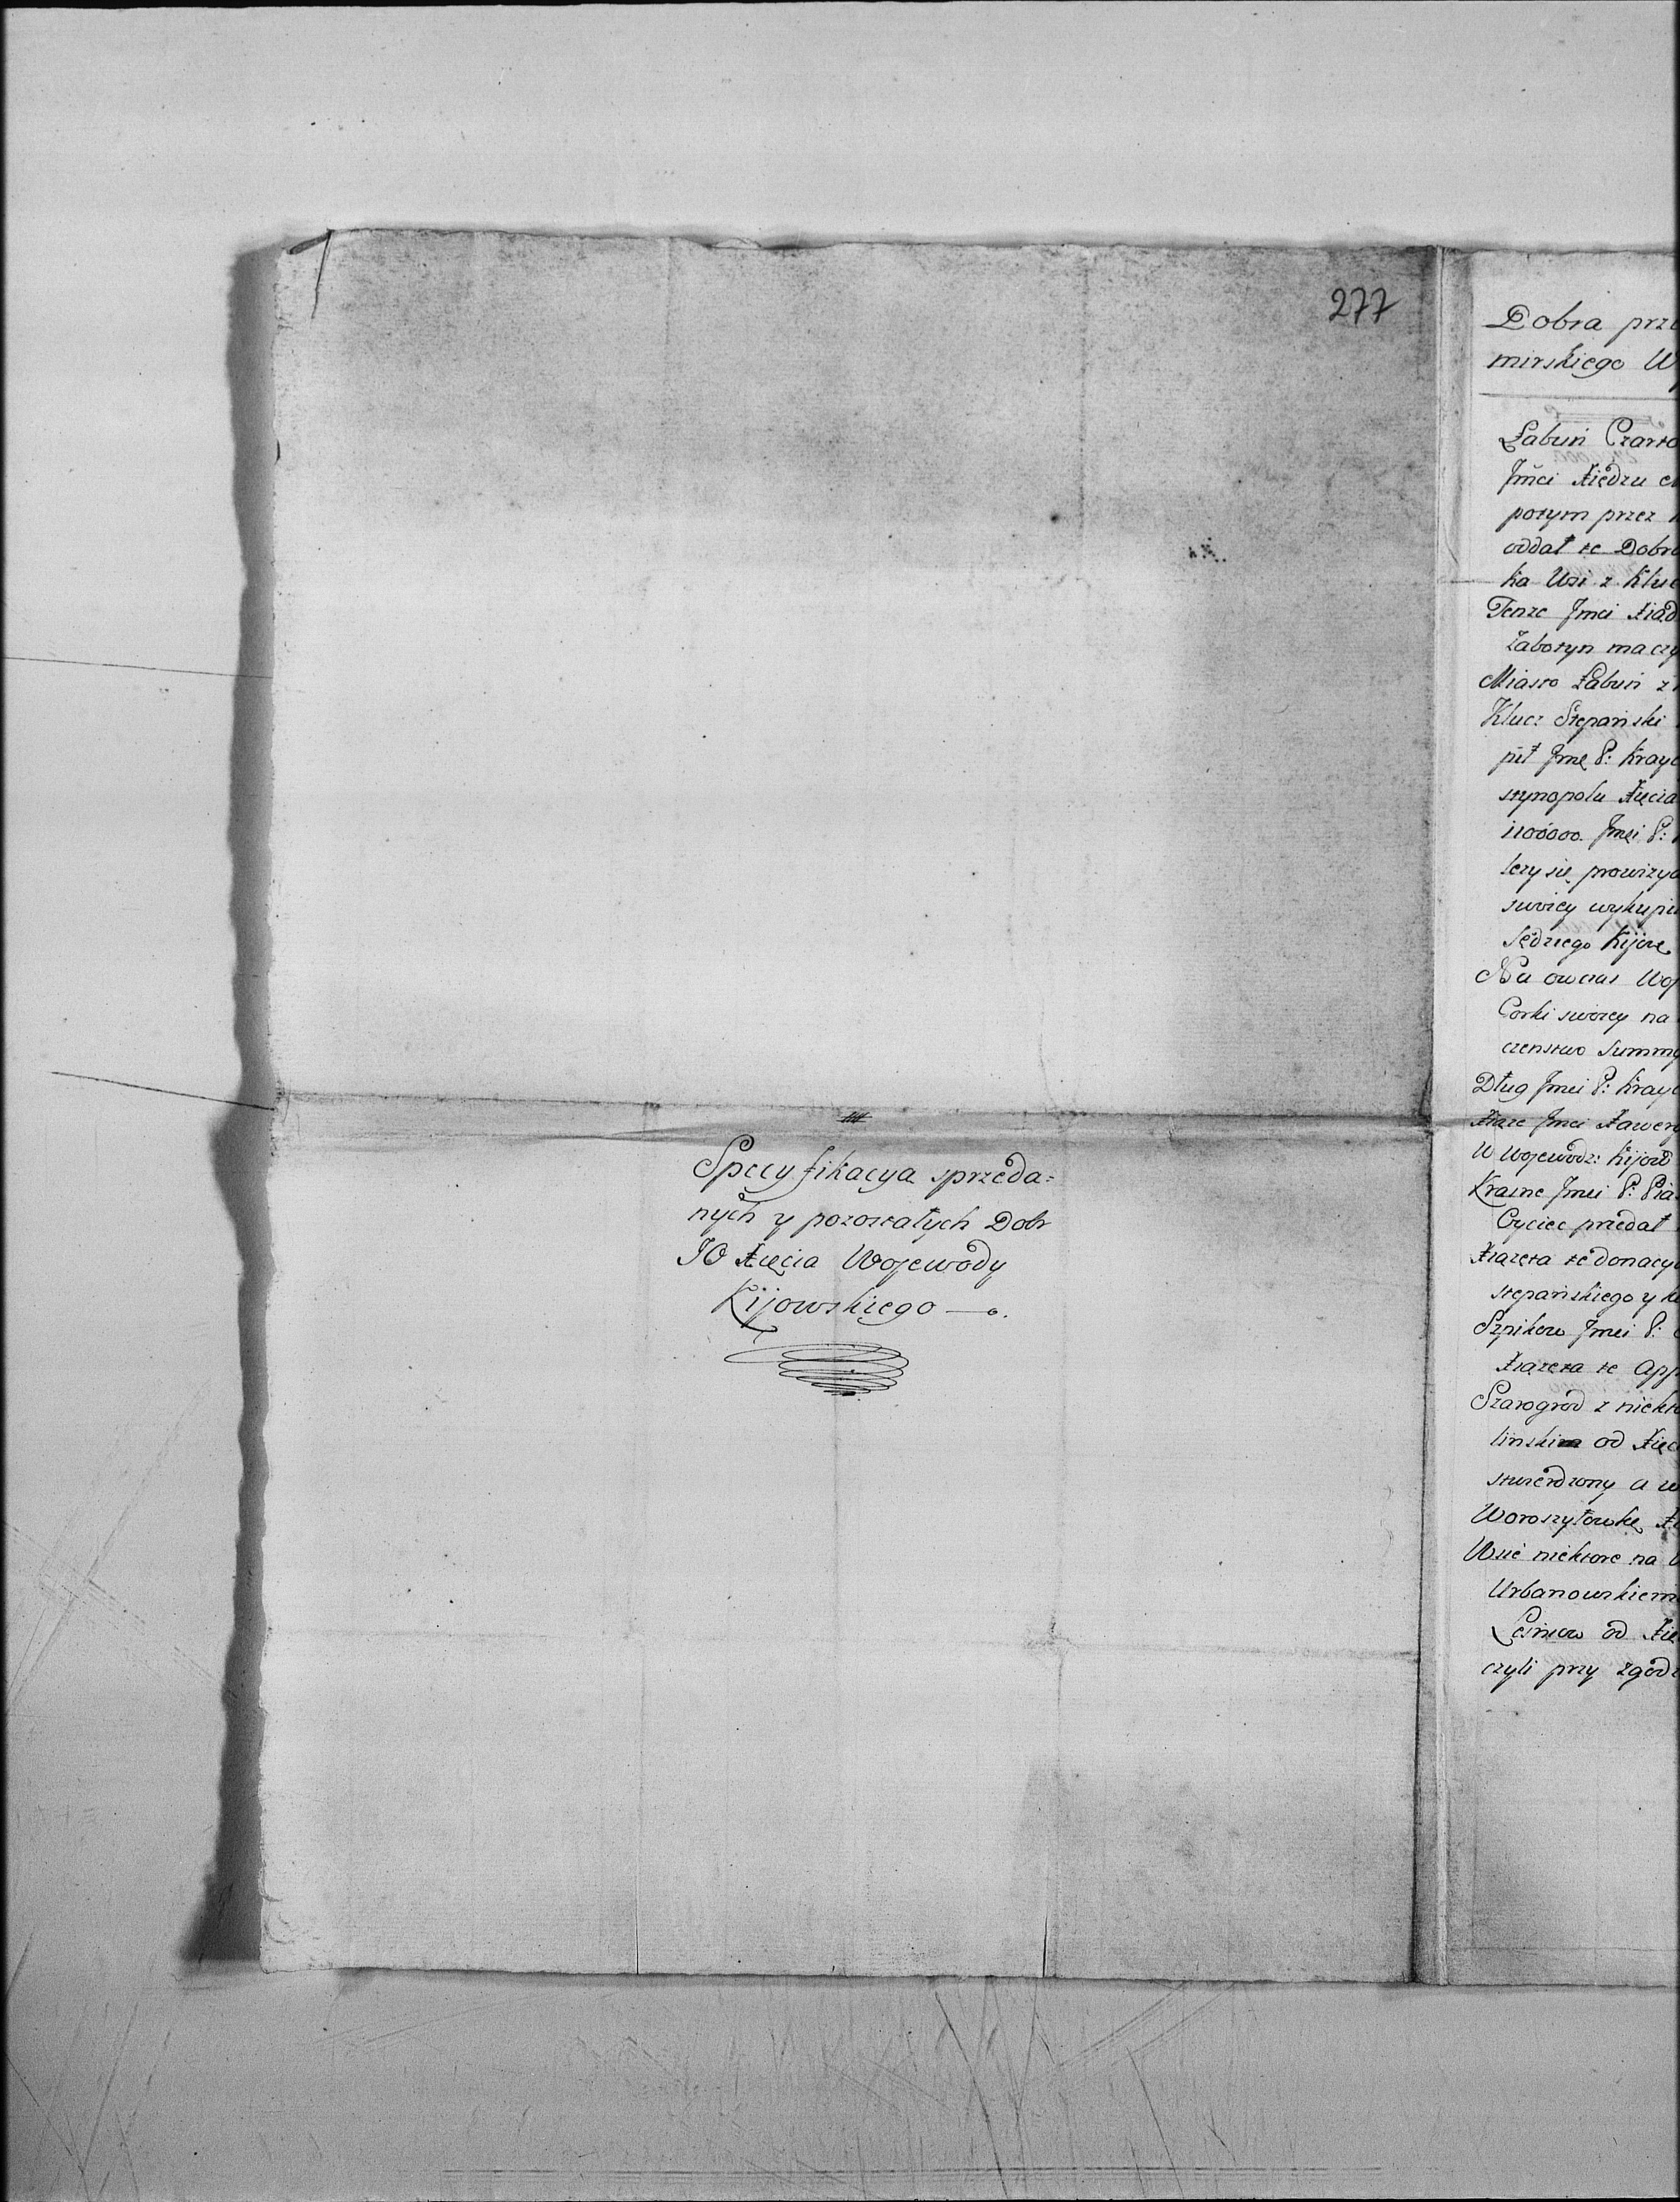 277
Specyfikacya sprzeda=
nych y pozostałych Dobr
JO Xięcia Wojewody
Kijowskiego
Dobra prze
mirskiego W
Łabuń Czarto
Jmci Xiędzu
potym przez
oddał te Dobra
ka Wsi z Kluc
Tenże Jmci Xiąd
Żabotyn maczy
Miasto Łabuń z
Klucz Stepański
pił Jmę P: Krayc
stynopolu Xięcia
1100000. Jmci P:
leży się prowizya
swoiey wykupie
Sędziego Kijow
Na owczas Woj
Corki swoiey na
czenstwo Summy
Dług Jmci P: Krayc
Xiąże Jmci Xawery
W Wojewodz: Kijow
Krasne Jmci P: Pia
Oyciec przedał
Xiążęta te donacy
stepańskiego y k
Szpikow Jmci P:
Xiążęta te App
Szarogrod z niekto
linskim od Xięc
stwierdzony a w
Woroszyłowkę X
Wsie niektore na
Urbanowskiem
Leśniow od Xię
czyli przy zgodz